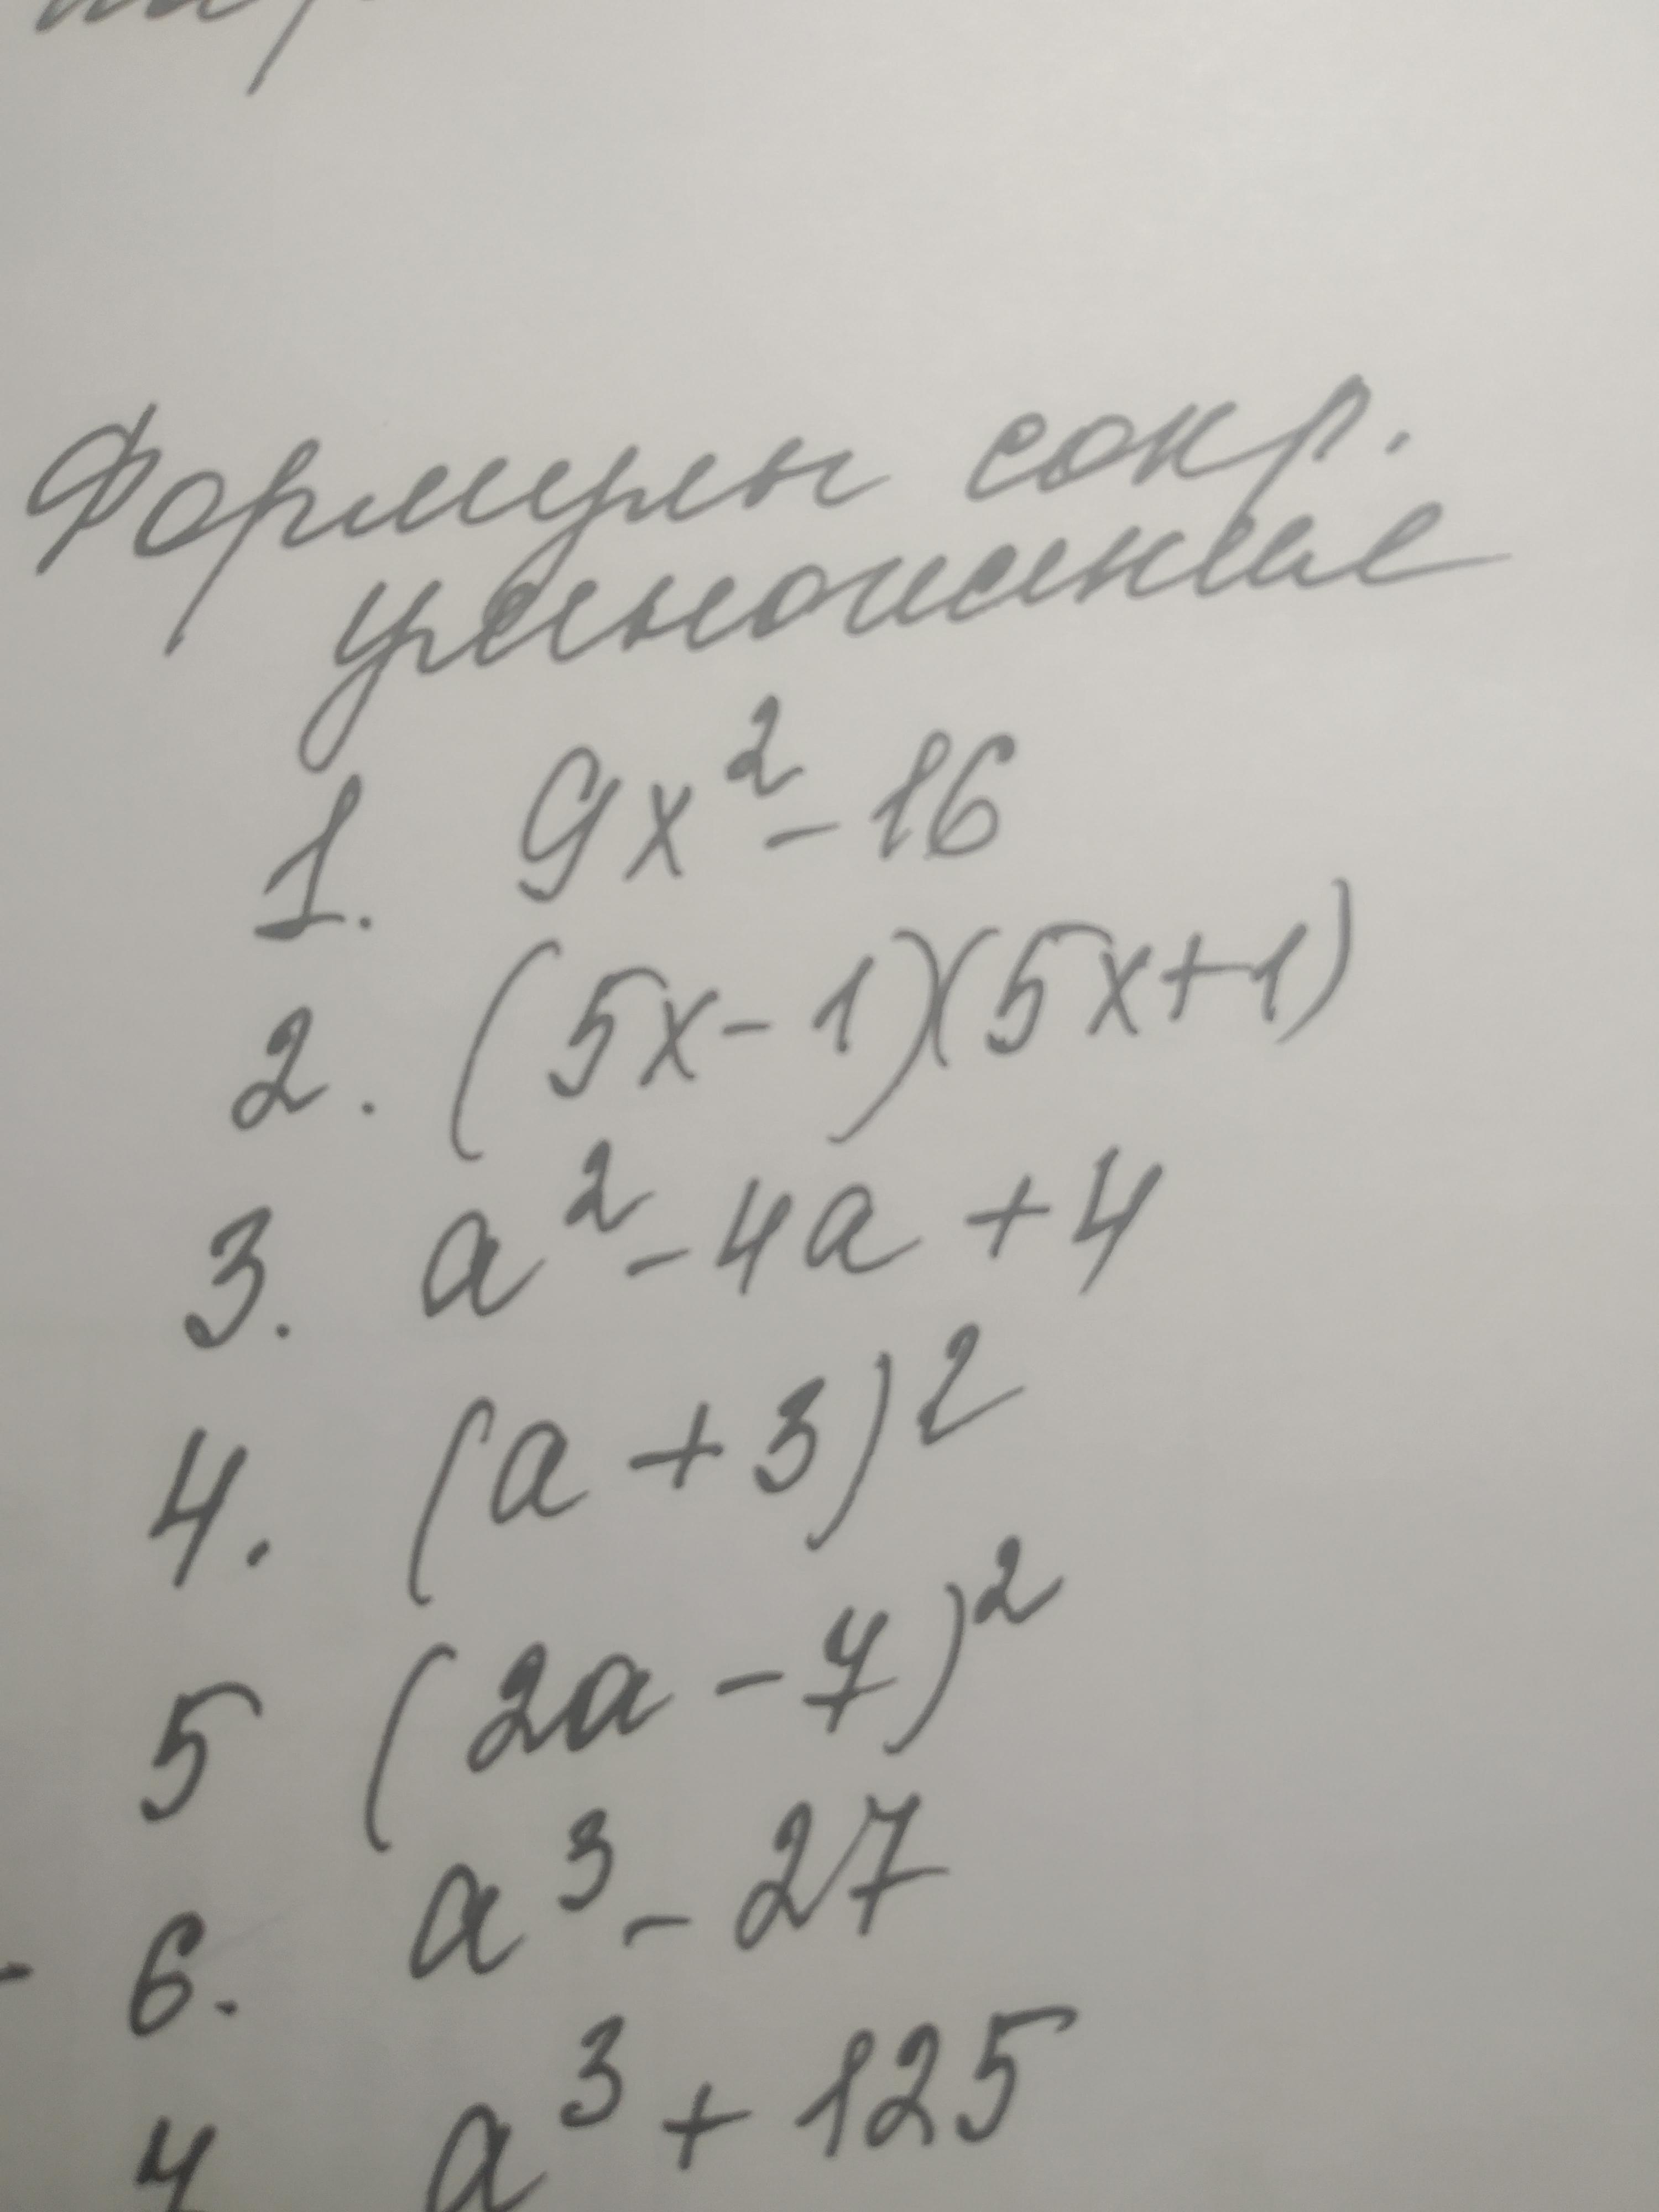 Формулы сокр.
умножение
1. 9x² - 16
2. (5x - 1)(5x + 1)
3. a² - 4a + 4
4. (a + 3)²
5 (2a - 7)²
6. a³ - 27
7 a³ + 125